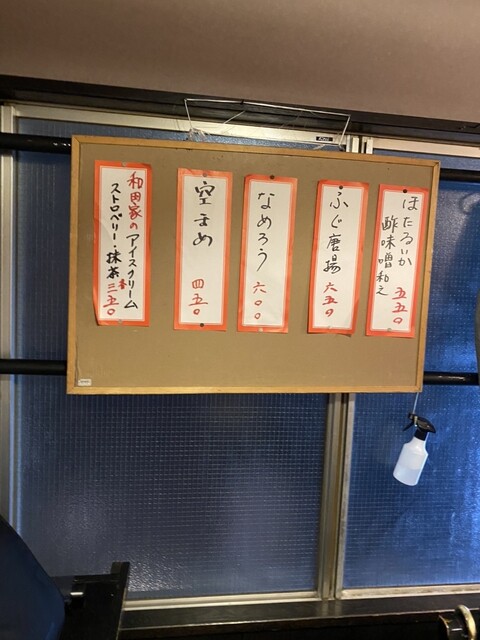 ほたるいか
酢味噌和え
五五〇
ふぐ唐揚
六五〇
なめろう
六〇〇
空まめ
四五〇
和田家のアイスクリーム
ストロベリー・抹茶
三五〇